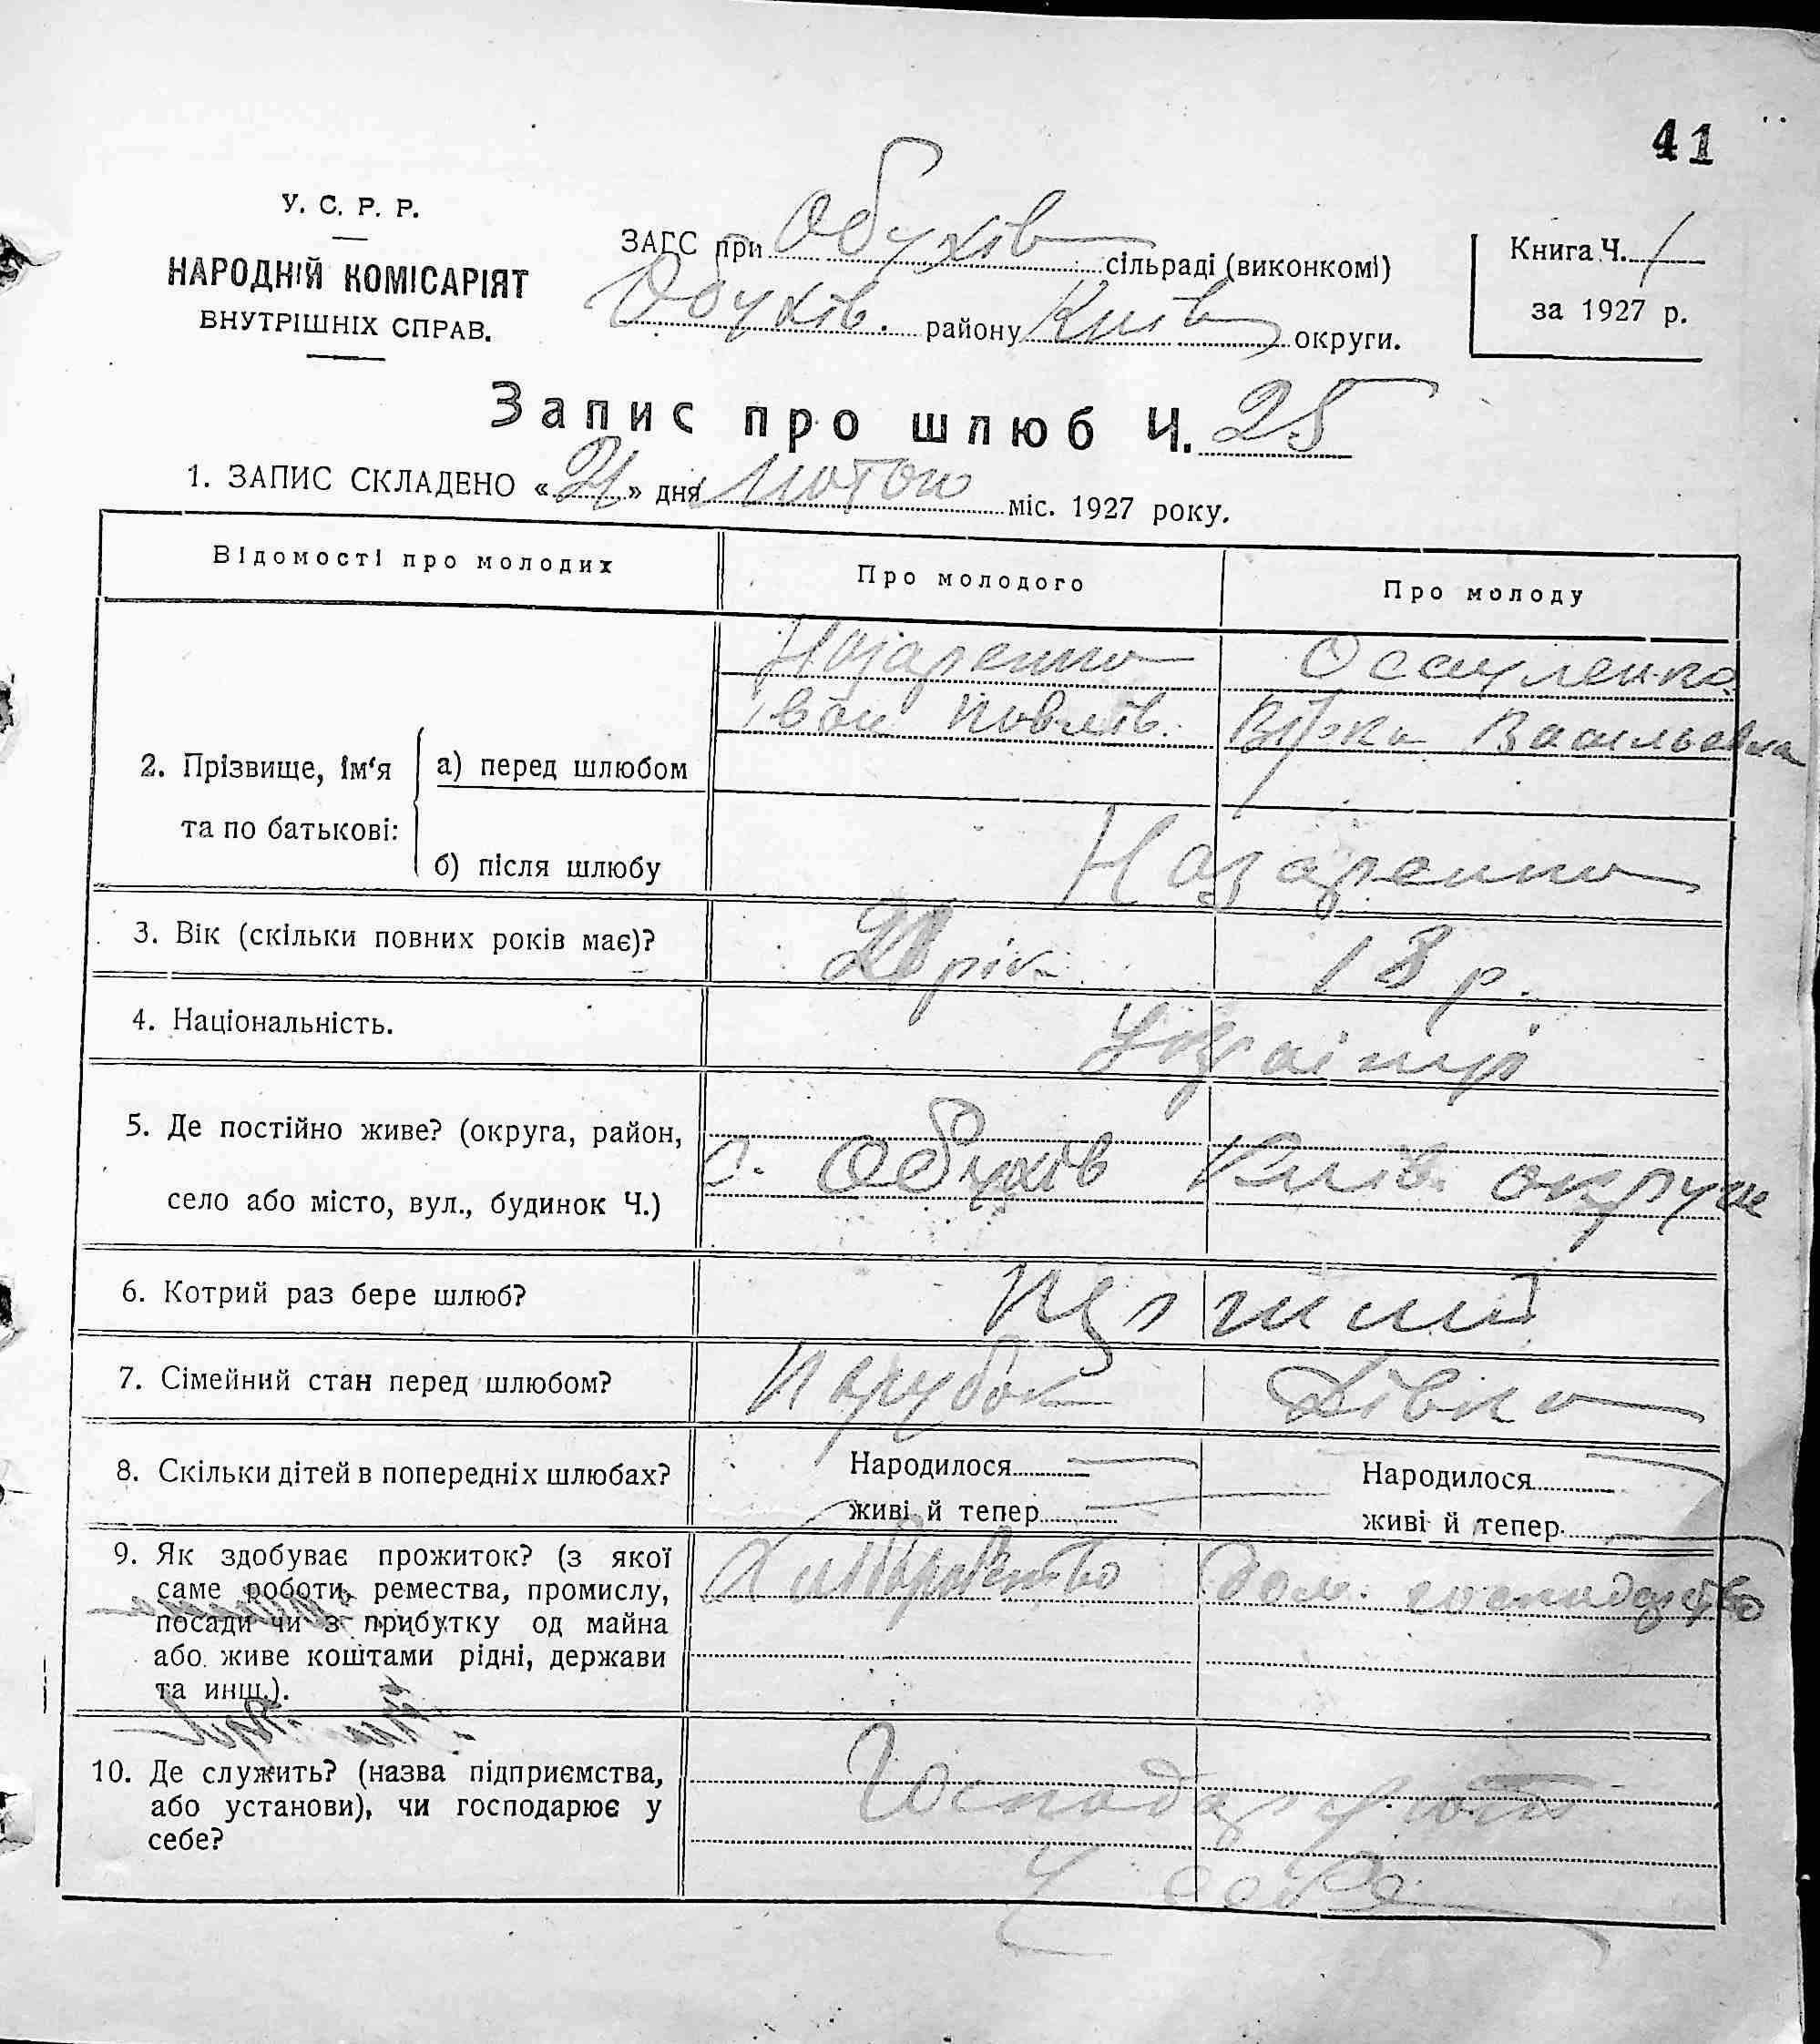 41
У. С. Р. Р.
НАРОДНІЙ КОМІСАРІЯТ
ВНУТРІШНІХ СПРАВ.
ЗАГС при Обухів сільраді (виконкомі)
Обухів. району Київ округи.
Книга Ч. 1
за 1927 р.
Запис про шлюб Ч. 25
1. ЗАПИС СКЛАДЕНО «21» дня лютого міс. 1927 року.
Відомості про молодих
Про молодого
Про молоду
2. Прізвище, ім‘я та по батькові:
а) перед шлюбом
Назаренко
Іван Павлов.
Осауленко
Вірка Васильовна
б) після шлюбу
Назаренко
3. Вік (скільки повних років має)?
20 рік
18 р.
4. Національність.
Українці
5. Де постійно живе? (округа, район,
село або місто, вул., будинок Ч.)
с. Обухів Київ. округи
6. Котрий раз бере шлюб?
Перший
7. Сімейний стан перед шлюбом?
Парубок
Дівка
8. Скільки дітей в попередніх шлюбах?
Народилося
живі й тепер
Народилося
живі й тепер
9. Як здобуває прожиток? (з якої
саме роботи, ремества, промислу,
посади чи з прибутку од майна
або живе коштами рідні, держави
та инш.).
Хліборобство
дом. господарство
10. Де служить? (назва підприємства,
або установи), чи господарює у
себе?
Господарують
у себе